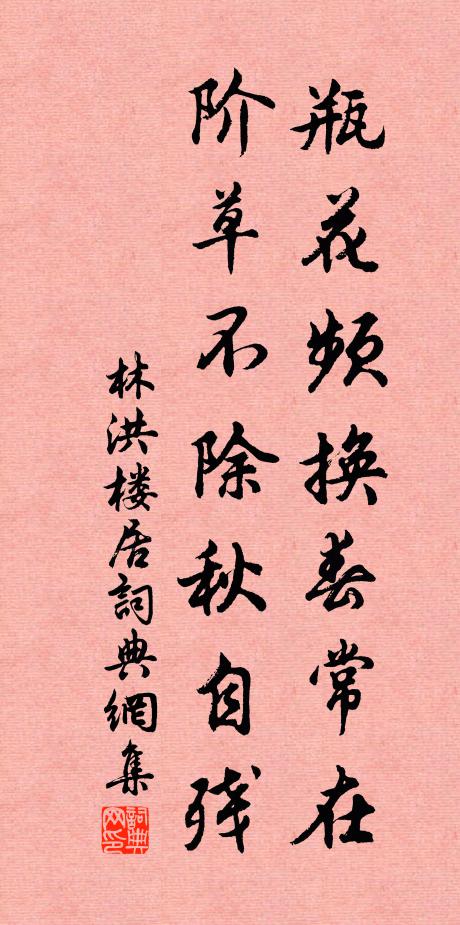 瓶花频换春常在
阶草不除秋自残
林洪楼居詞典網集
詞典网印